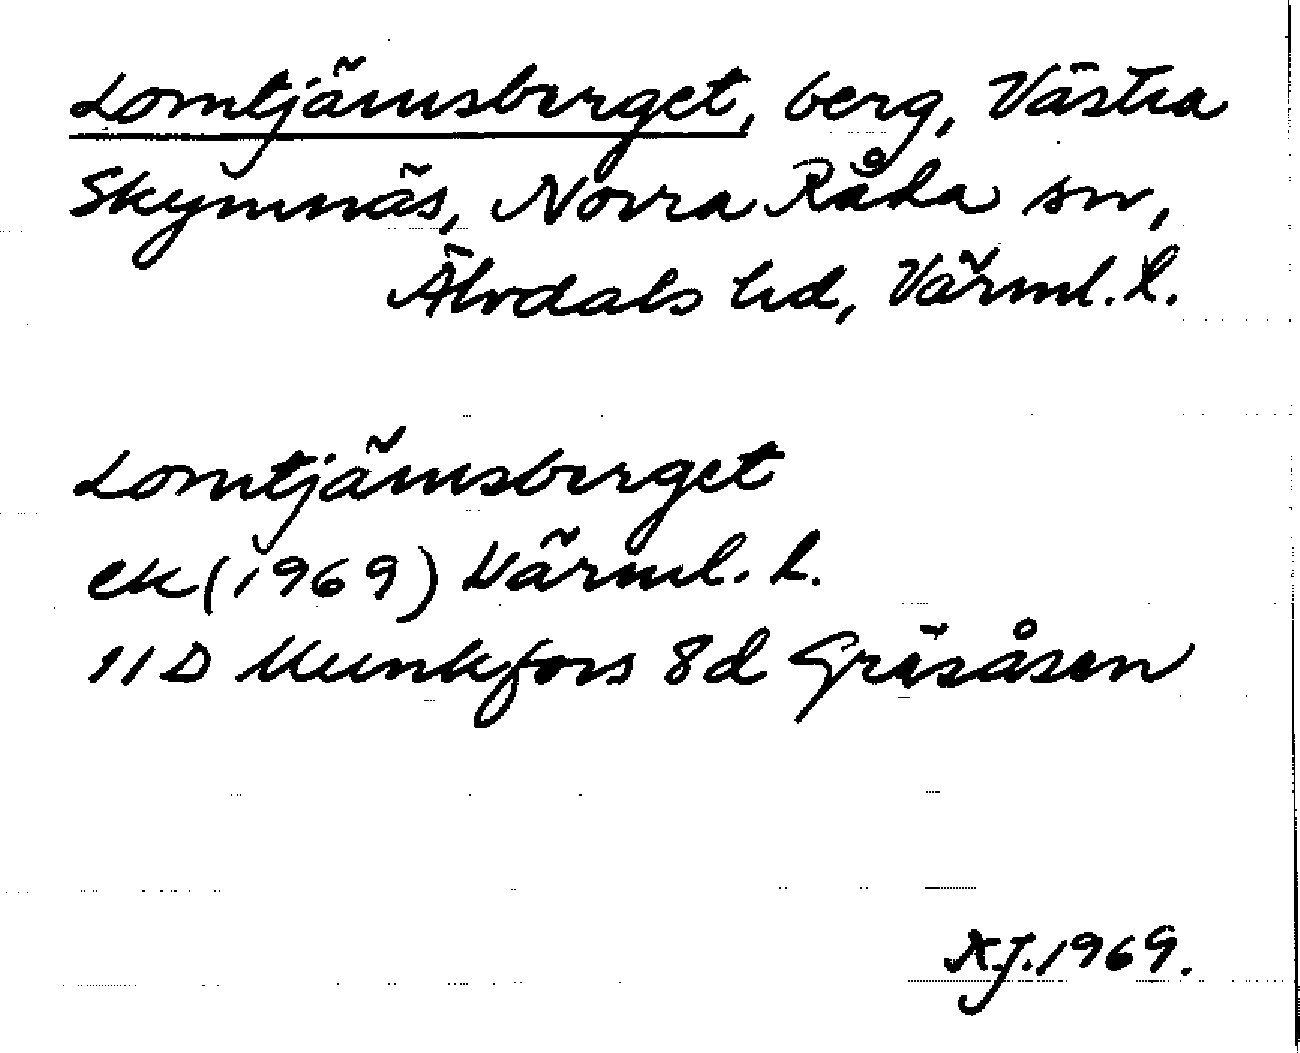 Lomtjärnsberget, berg, Västra
Skymnäs, Norra Råda sn,
Älvdals hd, Värml. l.
Lomtjärnsberget
ek (1969) Värml. l.
11 D Munkfors 8d Gräsåsen
1969.